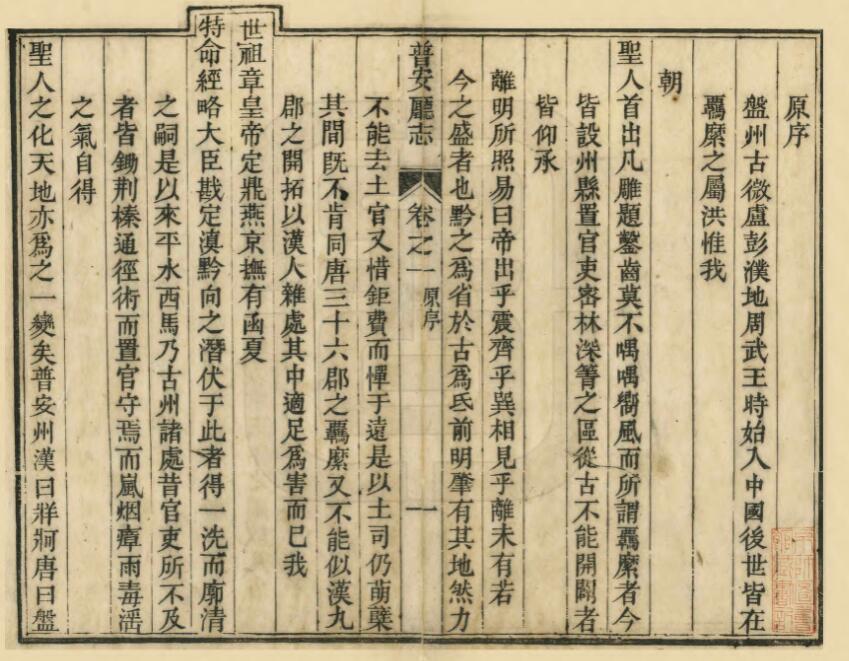 原序
盤州古微盧彭濮地周武王時始入中國後世皆在
羈縻之屬洪惟我
朝
聖人首出凡雕題鑿齒莫不喁喁嚮風而所謂羈縻者今
皆設州縣置官吏密林深箐之區從古不能開闢者
皆仰承
離明所照易曰帝出乎震齊乎巽相見乎離未有若
今之盛者也黔之為省於古為氐前明肇有其地然力
普安廳志
卷之一
原序
一
不能去土官又惜鉅費而憚于遠是以土司仍萌蘖
其間既不肯同唐三十六郡之羈縻又不能似漢九
郡之開拓以漢人雜處其中適足為害而已我
世祖章皇帝定鼎燕京撫有函夏
特命經略大臣戡定滇黔向之潛伏于此者得一洗而廓清
之嗣是以來平水西馬乃古州諸處昔官吏所不及
者皆鋤荆榛通徑術而置官守焉而嵐烟瘴雨毒滛
之氣自得
聖人之化天地亦為之一變矣普安州漢曰牂牁唐曰盤